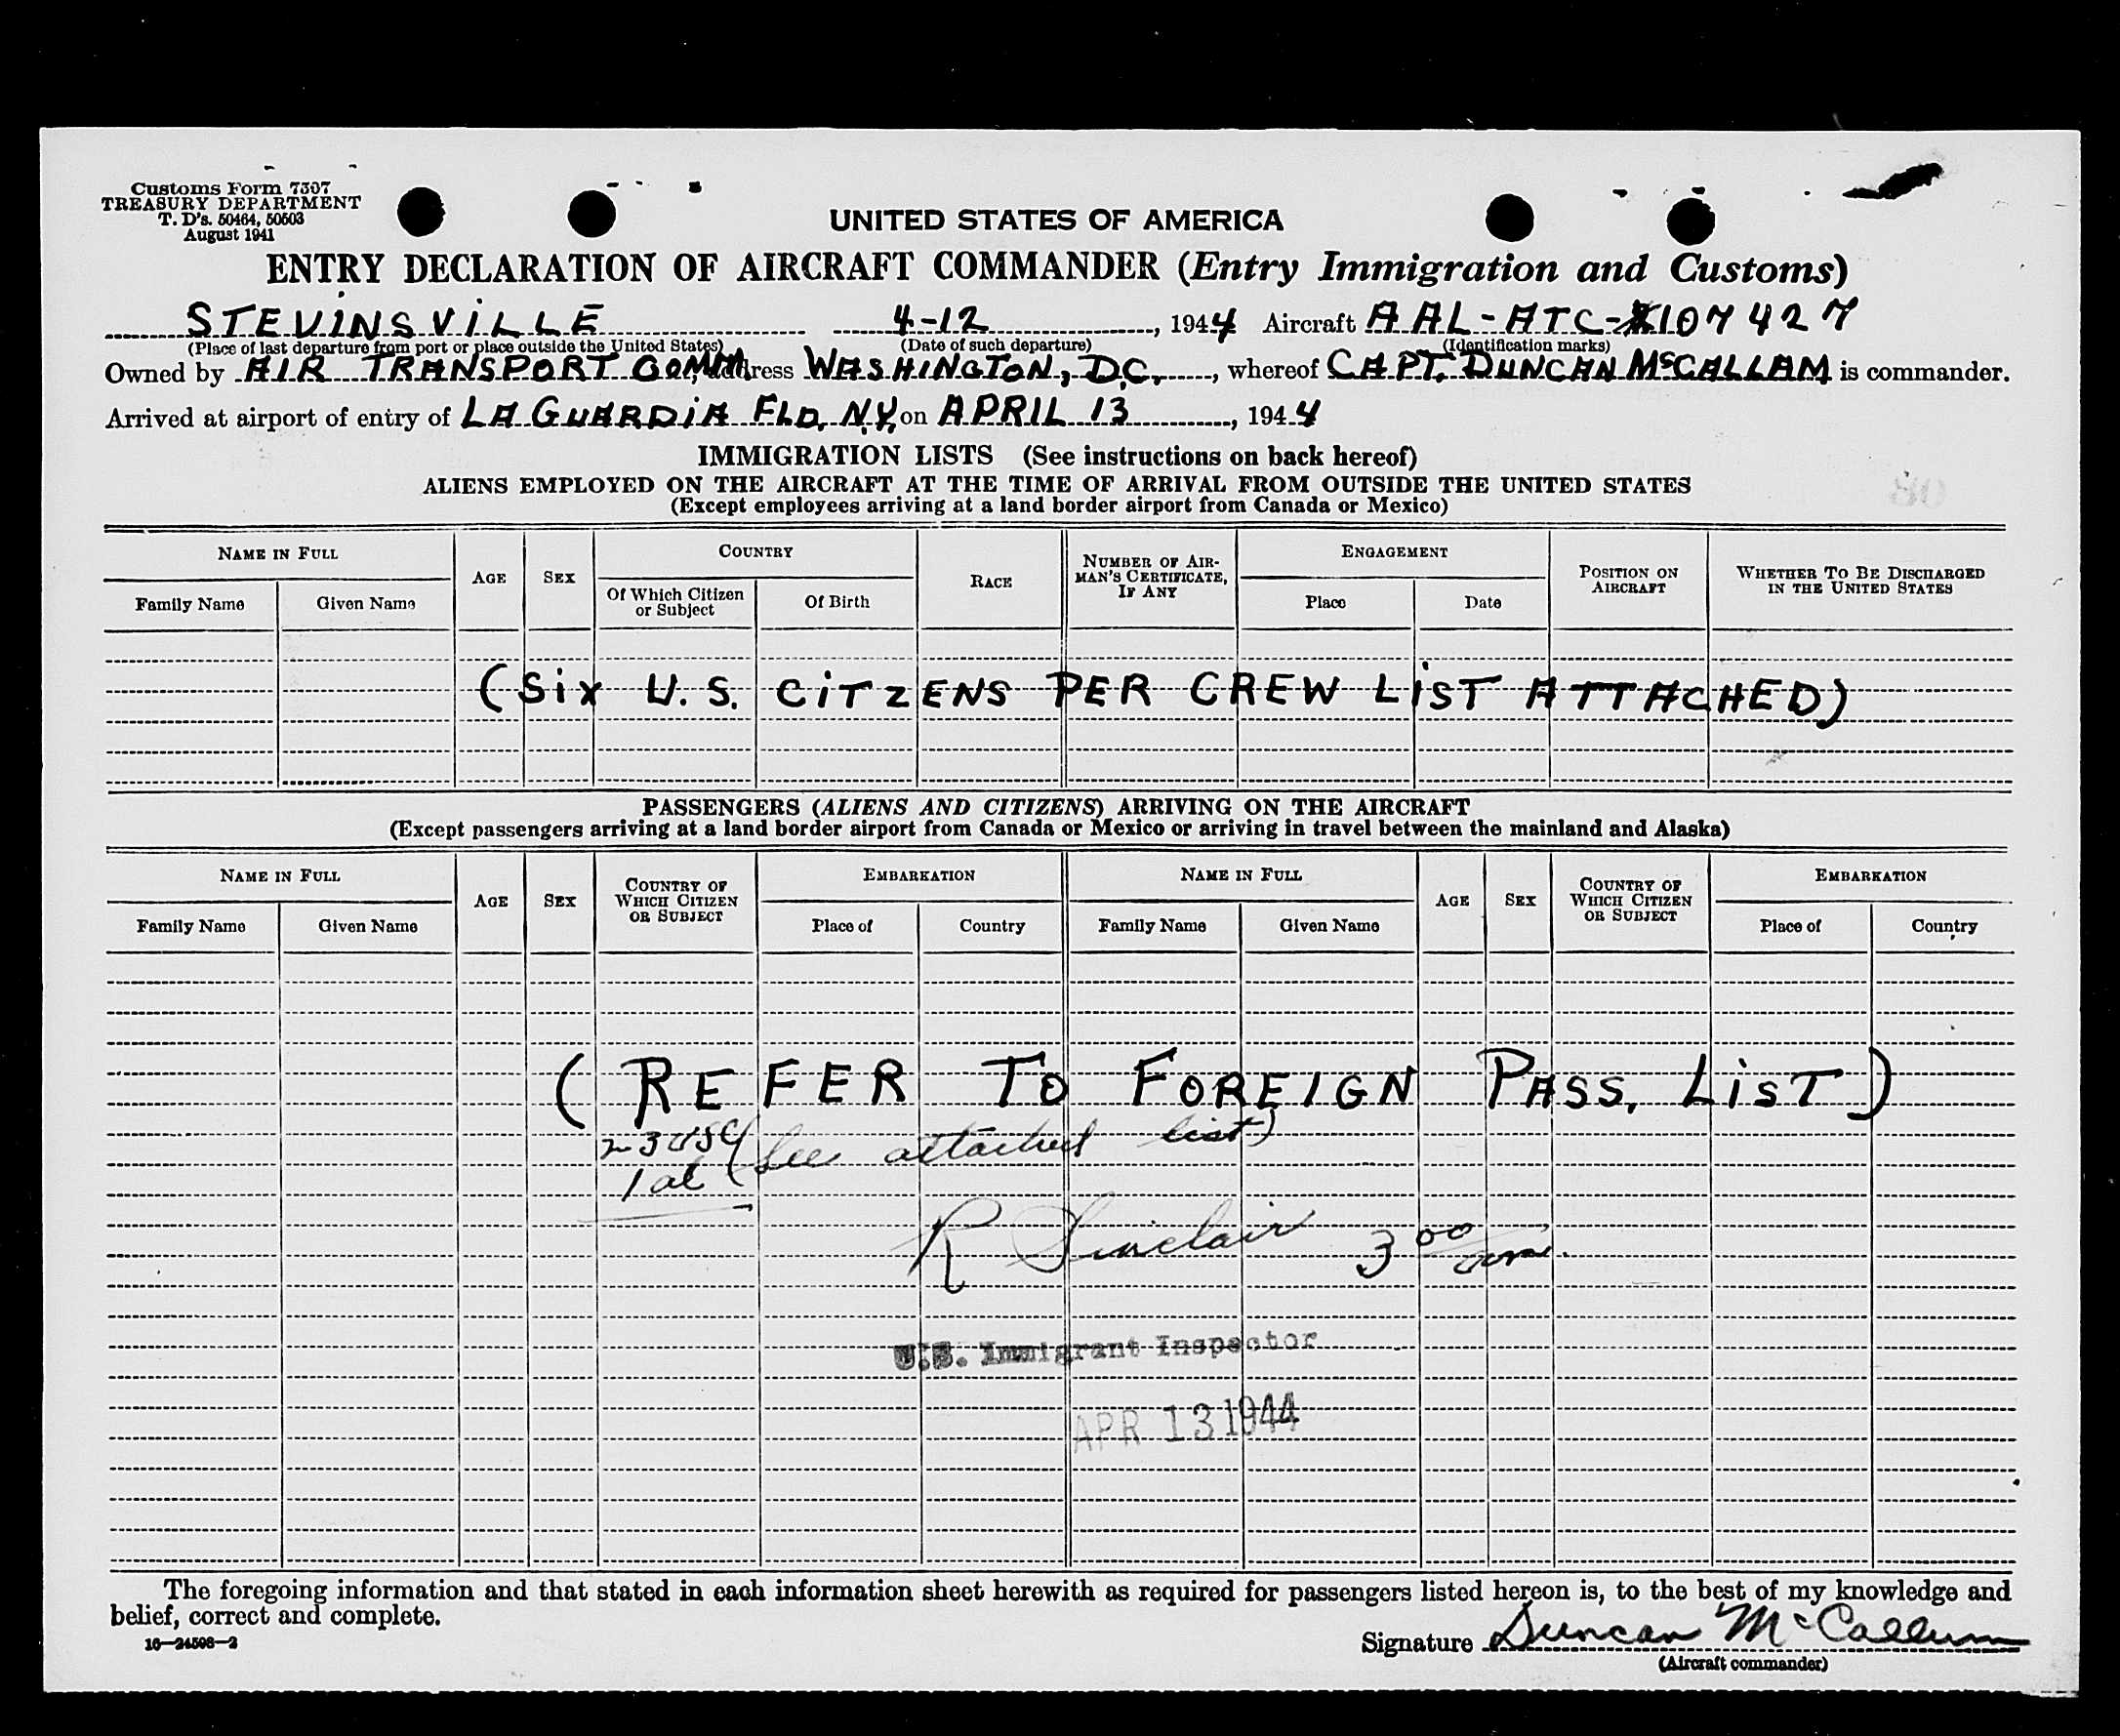 Customs Form 7507
TREASURY DEPARTMENT
T. D's. 50464, 50503
August 1941
UNITED STATES OF AMERICA
ENTRY DECLARATION OF AIRCRAFT COMMANDER (Entry Immigration and Customs)
STEVINSVILLE 4-12, 1944 Aircraft AAL-ATC-107427
(Place of last departure from port or place outside the United States) (Date of such departure) (Identification marks)
Owned by AIR TRANSPORT COMM, address WASHINGTON, D.C., whereof CAPT. DUNCAN McCALLAM is commander.
Arrived at airport of entry of LA GUARDIA FLD, N.Y, on APRIL 13, 1944
IMMIGRATION LISTS (See instructions on back hereof)
ALIENS EMPLOYED ON THE AIRCRAFT AT THE TIME OF ARRIVAL FROM OUTSIDE THE UNITED STATES
(Except employees arriving at a land border airport from Canada or Mexico)
NAME IN FULL AGE SEX COUNTRY RACE NUMBER OF AIRMAN'S CERTIFICATE, IF ANY ENGAGEMENT POSITION ON AIRCRAFT WHETHER TO BE DISCHARGED IN THE UNITED STATES
Family Name Given Name Of Which Citizen or Subject Of Birth Place Date
(SiX U.S. CiTZENS PER CREW LIST ATTACHED)
PASSENGERS (ALIENS AND CITIZENS) ARRIVING ON THE AIRCRAFT
(Except passengers arriving at a land border airport from Canada or Mexico or arriving in travel between the mainland and Alaska)
NAME IN FULL AGE SEX COUNTRY OF WHICH CITIZEN OR SUBJECT EMBARKATION NAME IN FULL AGE SEX COUNTRY OF WHICH CITIZEN OR SUBJECT EMBARKATION
Family Name Given Name Place of Country Family Name Given Name Place of Country
(REFER TO FOREIGN PASS, LiST)
(See attached list)
1 al
R Sinclair 3 00 am.
U.S. Immigrant Inspector
APR 13 1944
The foregoing information and that stated in each information sheet herewith as required for passengers listed hereon is, to the best of my knowledge and
belief, correct and complete.
16—24508-2
Signature Duncan McCallum
(Aircraft commander)